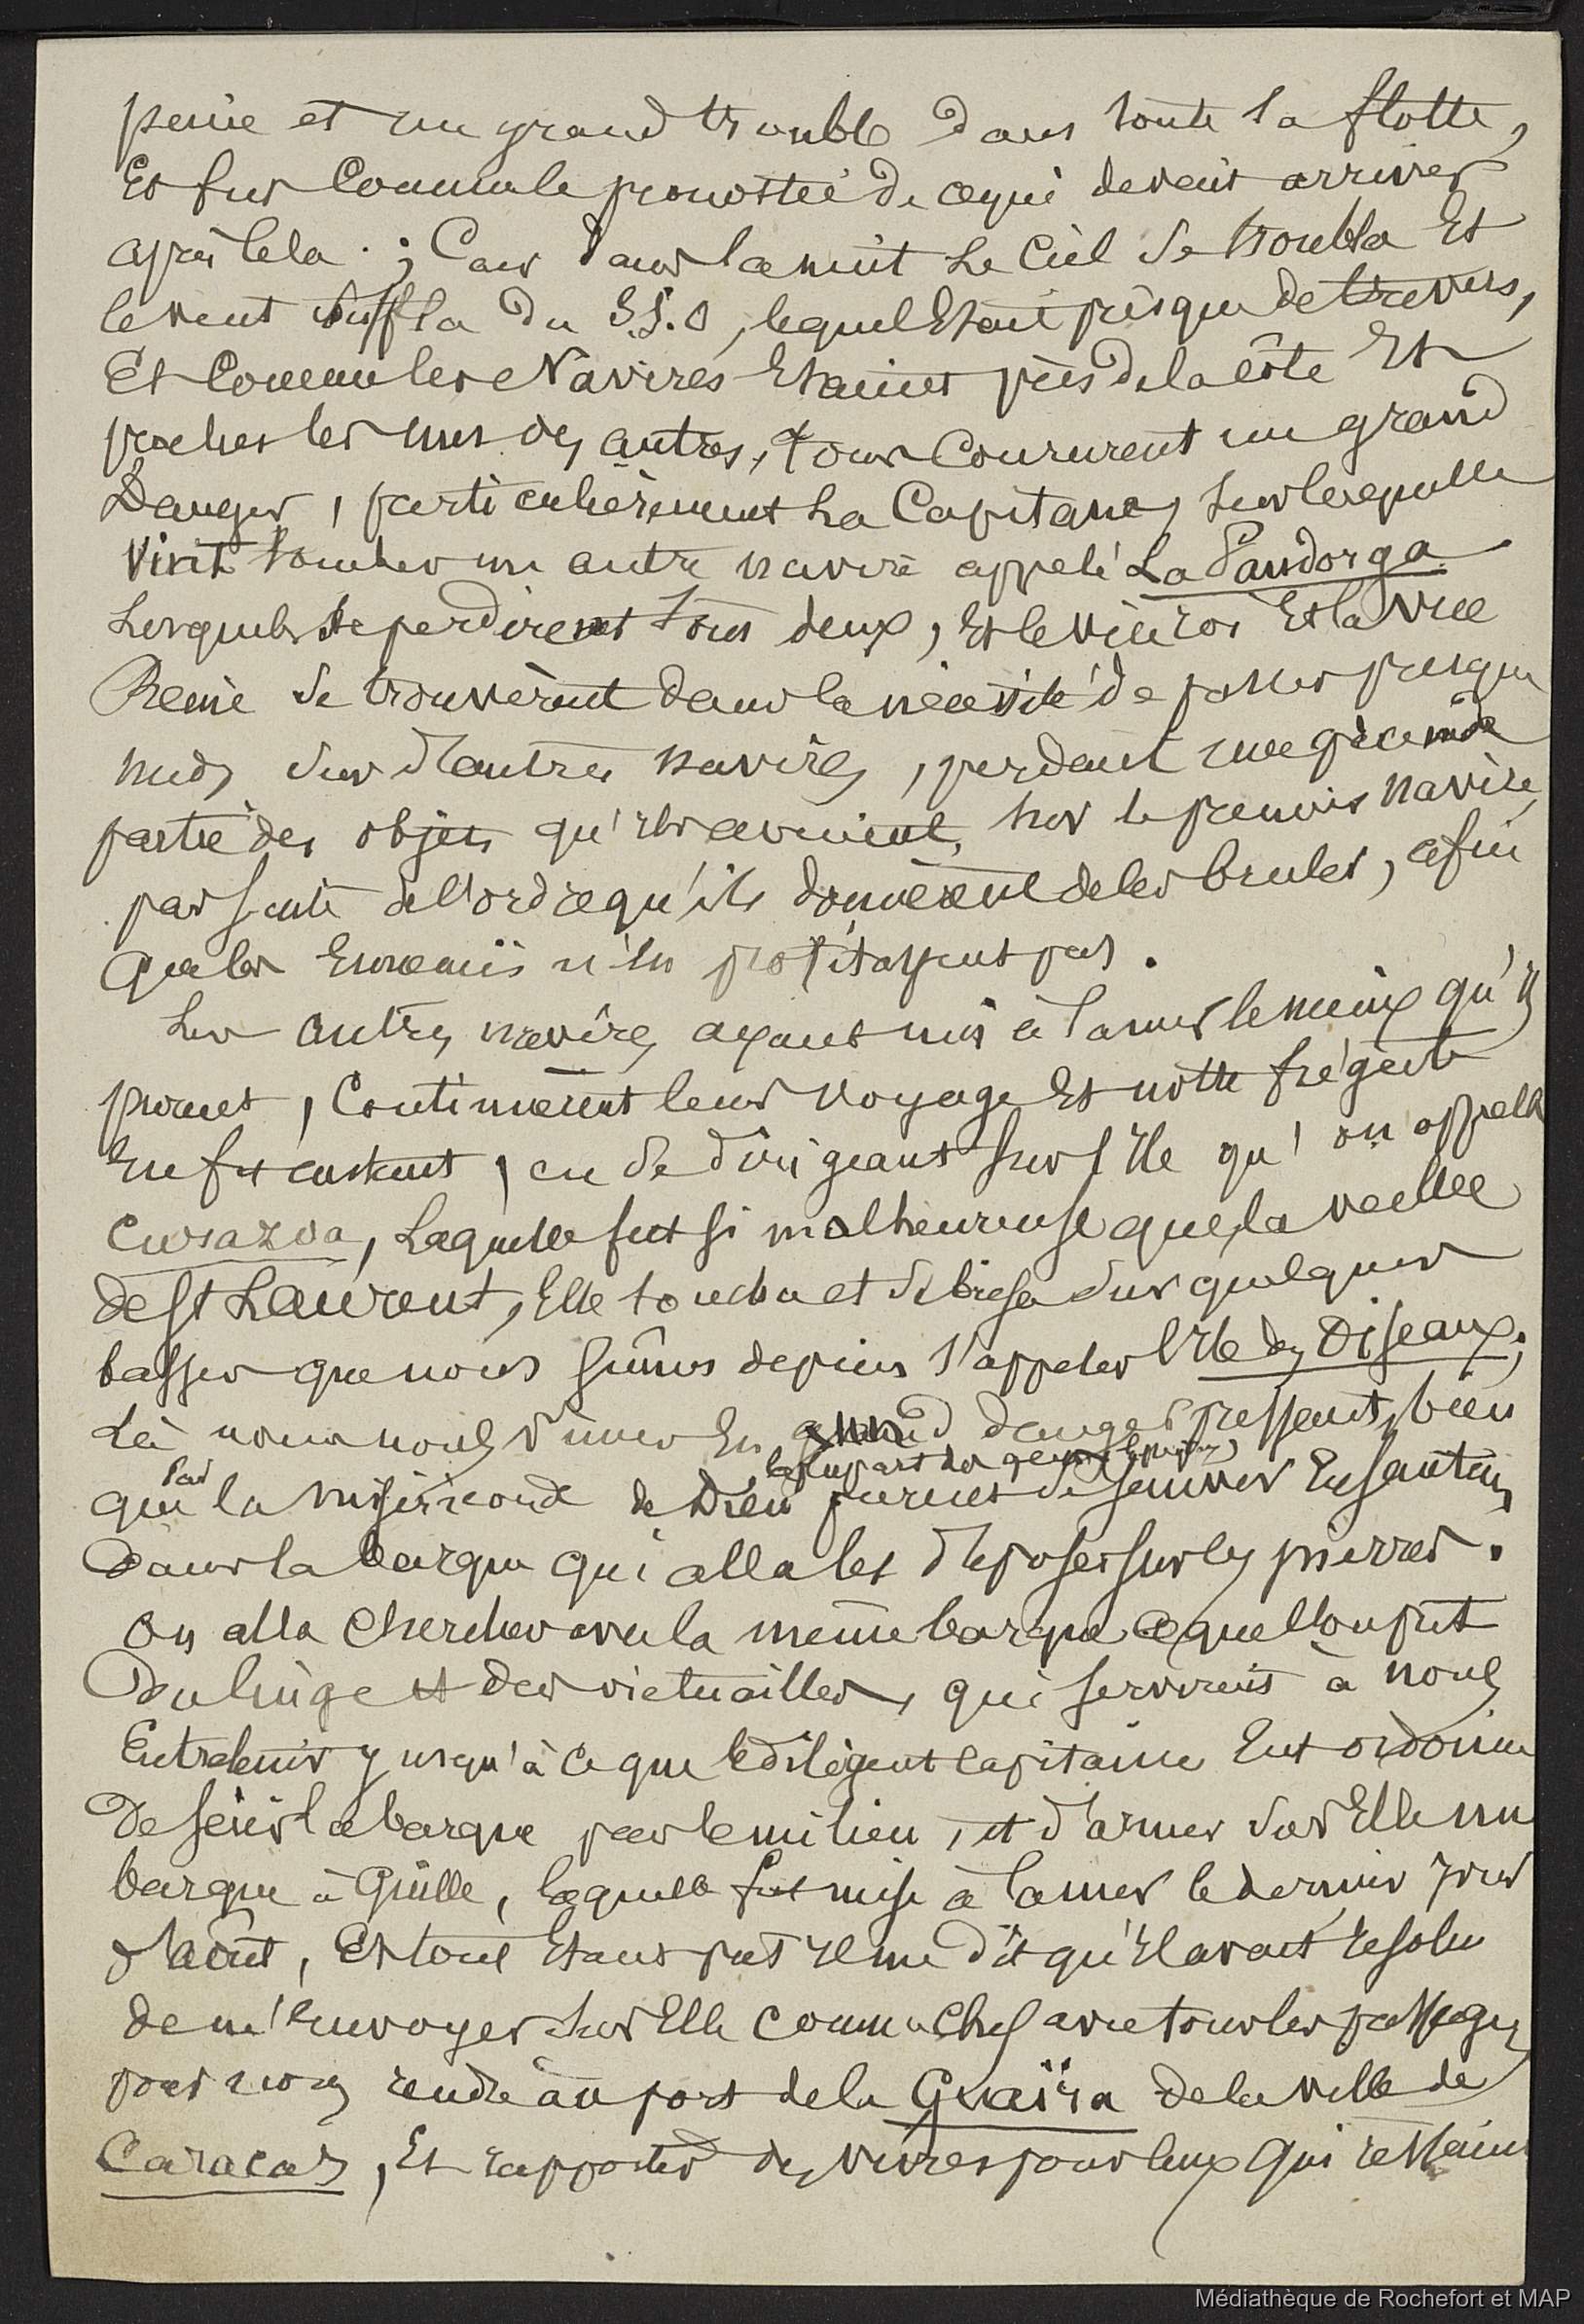 peine et un grand trouble dans toute la flotte,
Et fut Comme le pronostic de ce qui devait arriver
après Cela ; Car dans la nuit Le Ciel se troubla Et
le vent souffla du S.S.O, lequel Etait presque de travers,
Et Comme les Navires Etaient près de la côte Et
proches les uns des autres, tous Coururent un grand
Danger, particulièrement La Capitane, sur laquelle
Vint tomber un autre navire appelé La Pandorga
Lesquels se perdirent tous deux, Et le Vice roi Et la Vice
Reine se trouvèrent dans la nécessité de passer presque
nuds sur d'autres navires, perdant une grande
partie des objets qu'ils avaient sur le premier navire,
par suite de l'ordre qu'ils donnèrent de les bruler, afin
que les Ennemis n'en profitassent pas.
Les autres navires, ayant mis à la mer le mieux qu'ils
purent, Continuèrent leur voyage Et notre frégate
En fit autant, en se dirigeant sur l'Ile qu'on appelle
Curazoa, Laquelle fut si malheureuse que, la veille
de St Laurent, Elle toucha et se brisa sur quelques
basses que nous sûmes depuis s'appeler l'Ile des Oiseaux;
Là nous nous vîmes En danger pressant, bien
que par la miséricorde de Dieu la plupart des gens purent se sauver En sautant
Dans la barque qui alla les déposer sur les pierres.
On alla chercher avec la même barque ce que l'on put
Du linge et des victuailles, qui servirent à nous
Entretenir jusqu'à ce que le diligent capitaine Eut ordonné
De scier la barque par le milieu, et d'armer sur Elle une
barque à Quille, laquelle fut mise à la mer le dernier jour
d'Août, Et tout Etant prêt Il me dit qu'Il avait résolu
de m'Envoyer sur Elle comme Chef avec tous les passagers
pour nous rendre au port de la Guaïra de la ville de
Caracas, Et rapporter des vivres pour ceux qui restaient